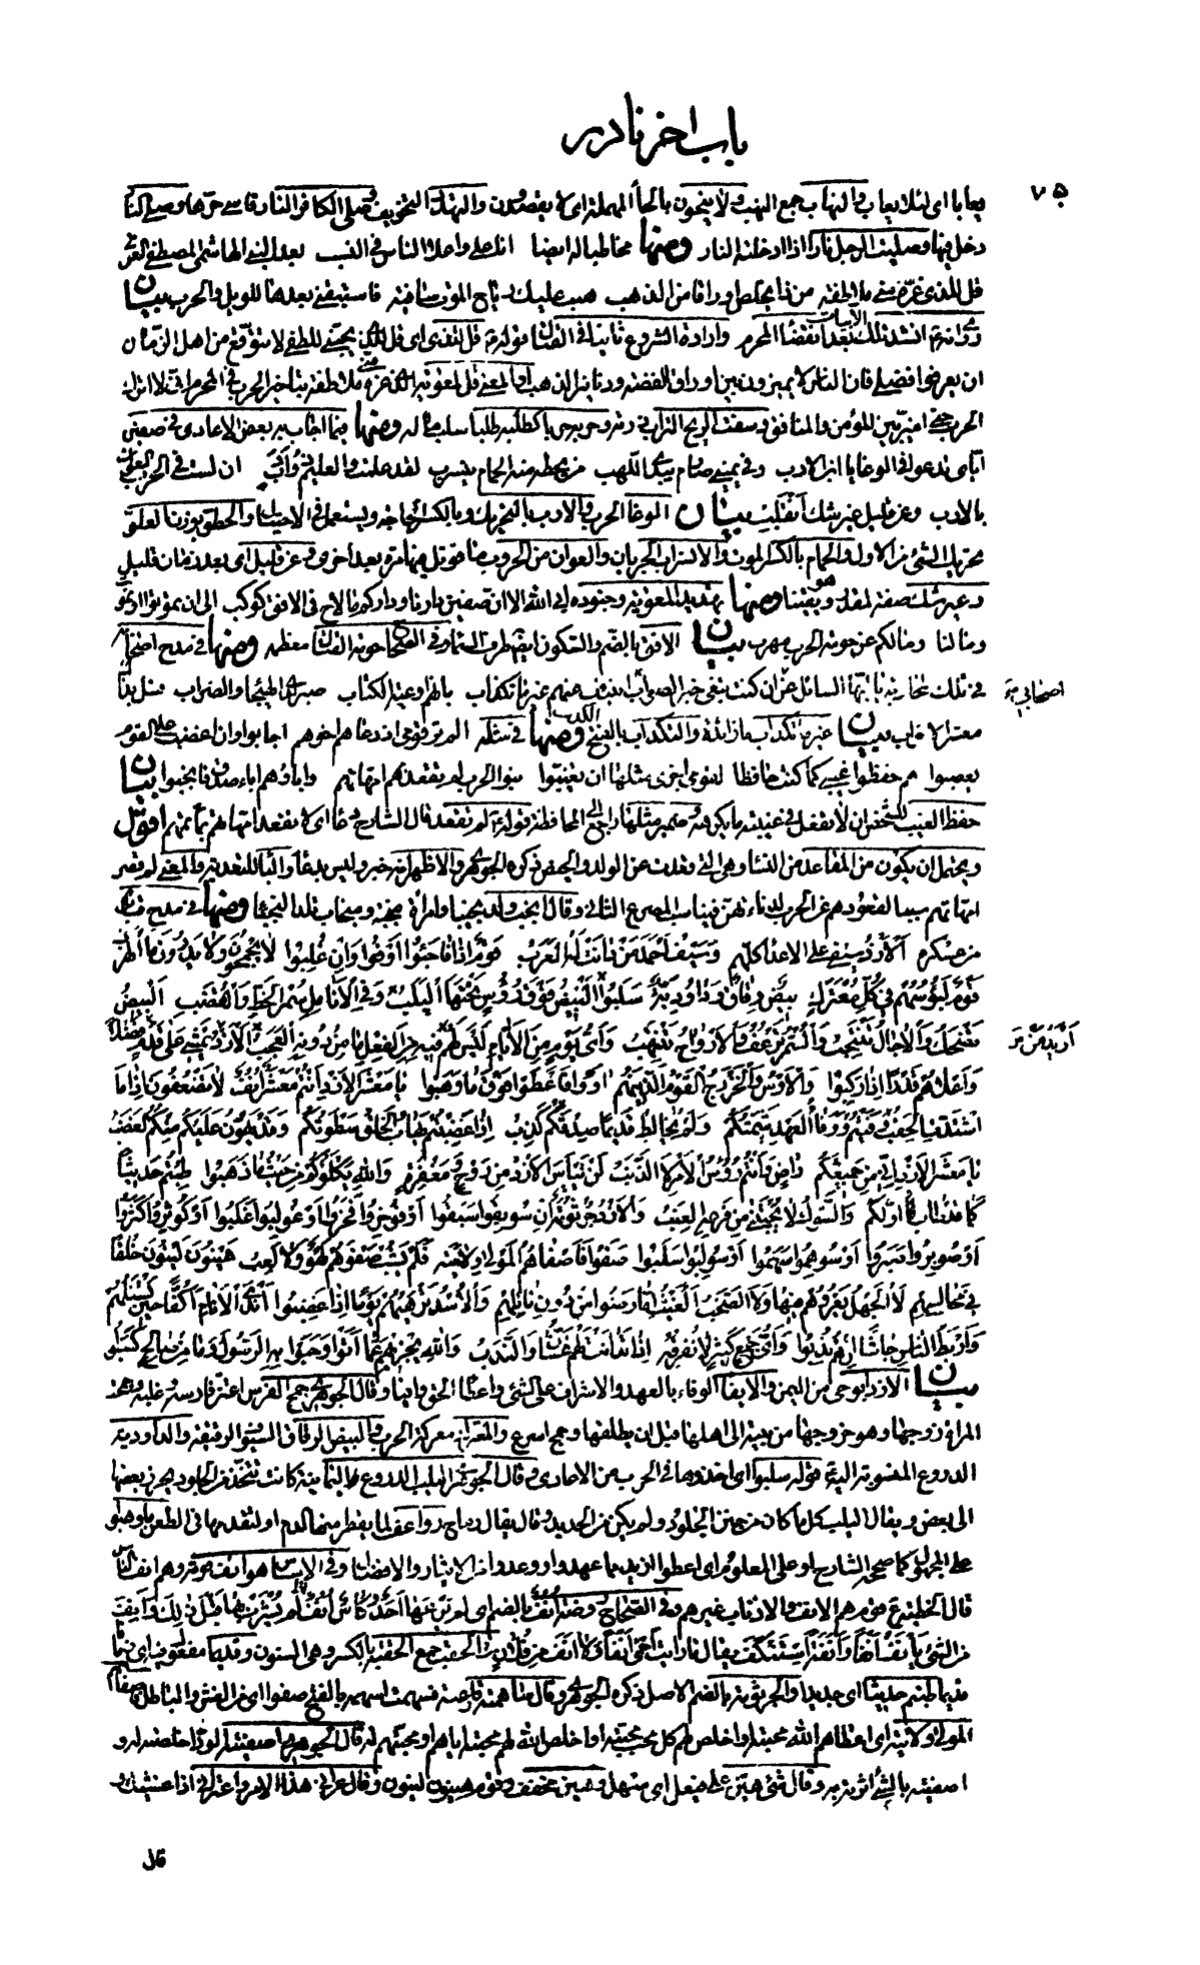 باب اخر نادر
٧٥
يعابا اى لئلا يعاب والنهاب جمع النهب ولا ينحون بالحاء المهملة اى لا يقصدون والتهدد التخويف وصلى الكافر النار قاسى حرها وصلى النار
دخل فيها وصليت الرجل نارا اذا ادخلته النار ومنها مخاطبا له ايضا انا على واعلا الناس فى النسب بعد النبى الهاشمى المصطفى العربى
قل للذى غره منى ملاطفة من ذا يخلص اوراقا من الذهب هبت عليك رياح الموت سافية فاستبقنى بعدها للويل والحرب بيان
روى انه انشد تلك الابيات بعد انقضاء المحرم وارادة الشروع ثانيا فى القتال قوله قل للذى اى قل للذى
ان يعرفوا فضلى فان الناس لا يميزون بين اوراق الفضة ودنانير الذهب او المعنى قل لمعوية الذى غره منى ملاطفة بتاخير الحرب فى المحرم
الحرب حتى اميز بين المؤمن والمنافق وسفت الريح التراب ذرته وحربه يحربه كطلبه يطلبه طلبا سلب ماله ومنها مما اجاب به بعض الاعادى فى صفين
اياى تدعو فى الوغا يا ابن الارب وفى يمينى صارم يبدى اللهب من يحطه منه الحمام ينسرب لقد علمت والعليم ذو ادب ان لست فى الحرب العوان
بالارب وعن قليل غير شك انقلب بيان الوغا الحرب والارب بالتحريك وبالكسر الحاجة ويستعمل فى الاحتيال
تحريك الشئ نزالا ولد والحمام بالكسر الموت والانسراب الجريان والعوان من الحروب ما قوتل فيها مرة بعد اخرى وعن قليل اى بعد زمان قليل
وغير شك صفة لمقدر هو يقينا ومنها تهديدا لمعوية وجنوده ابى الله الا ان صفين دارنا وداركم ما لاح فى الافق كوكب الى ان تموتوا او نموت
وما لنا وما لكم عن حومة الحرب مهرب بيان الافق بالضم والسكون وبضمتين طرف السماء وفى الصحاح حومة القتال معظمه ومنها فى مدح اصحابه
فى تلك المحاربة يا ايها السائل عن اصحابى ان كنت تبغى خبر الصواب انبئك عنهم غير ما تكذاب بانهم اوعية الكتاب صبر لدى الهيجاء والضراب فسل بذاك
معشر الاحزاب بيان غير ما تكذاب ما زائدة والتكذاب بالفتح الكذب ومنها فى مثله الم تر قومى اذ دعاهم اخوهم اجابوا وان اغضب على القوم
يغضبوا هم حفظوا غيبى كما كنت حافظا لقومى اخرى مثلها ان تغيبوا بنو الحرب لم تقعد بهم امهاتهم واباؤهم اباء صدق فانجبوا بيان
حفظ الغيب للشخص ان لا يفعل فى غيبته ما يكرهه وضمير مثلها راجع الى المحافظة قوله لم تقعد قال الشارح دعا اى لا يقعد امهاتهم بماتمهم اقول
ويحتمل ان يكون من المقاعد من النساء وهى التى قعدت عن الولد والحيض ذكره الجوهرى والاظهر انه خبر وليس بدعاء والباء للتعدية والمعنى لم تصر
امهاتهم سببا لقعودهم عن الحرب لدناءتهن فيناسب المصرع الثانى وقال انجب ولد نجيبا وامراة منجبة ومنجاب تلد النجباء ومنها فى مدح قبائل
من عسكره الازد سيفى على الاعداء كلهم وسيف احمد من دانت له العرب قوم اذا فاجئوا اوفوا وان غلبوا لا يحجمون ولا يدرون ما الهرب
قوم لبوسهم فى كل معترك بيض رقاق وداودية سلب البيض فوق رؤس تحتها اليلب وفى الانامل سمر الخط والقضب البيض
تضحك والاجال تنتحب والسمر ترعف والارواح تنتهب واى يوم من الايام ليس لهم فيه من الفعل ما من دونه العجب الازد ازيد من يمشى على قدم فضلا
واعلاهم قدرا اذا ركبوا والاوس والخزرج القوم الذين هم اووا فاعطوا فوق ما وهبوا يا معشر الازد انتم معشر انف لا يضعفون اذا ما
اشتدت الحقب وفيتم ووفاء العهد شيمتكم ولم يخالط قديما صدقكم كذب اذا غضبتم يهاب الخلق سطوتكم وقد يهون عليكم منكم الغضب
يا معشر الازد انى من جميعكم راض وانتم رؤس الامر لا الذنب لن يياس الازد من روح ومغفرة والله يكلؤكم من حيث ما ذهبوا طبتم حديثا
كما قد طاب اولكم والشوك لا يجتنى من فرعه العنب والازد جرثومة ان سوبقوا سبقوا او فوخروا فخروا او غولبوا غلبوا او كوثروا كثروا
او صوبروا صبروا او سوهموا سهموا او سولبوا سلبوا صفوا فاصفاهم المولى ولايته فلم يشب صفوهم لهو ولا لعب هينون لينون خلقا
فى مجالسهم لا الجهل يعروهم فيها ولا الصخب الغيث ما رضوا من دون نائلهم والاسد ترهبهم يوما اذا غضبوا اندى الانام اكفا حين تسئلهم
واربط الناس جاشا ان هم ندبوا واى جمع كثير لا تفرقه اذا تدانت لهم غسان والندب والله يجزيهم عما اتوا وحبوا به الرسول وما من صالح كسبوا
بيان الازد ابو حى من اليمن والايفاء الوفاء بالعهد والاشراف على الشئ واعطاء الحق وافيا وقال الجوهرى جمح الفرس اعتز فارسه وغلبه وجمحت
المراة زوجها وهو خروجها من بيته الى اهلها قبل ان يطلقها وجمح اسرع والمعترك معركة الحرب والبيض الرقاق السيوف الرقيقة والداودية
الدروع المنسوبة اليه قوله سلبوا اى اخذوها فى الحرب من الاعادى قال الجوهرى اليلب الدروع اليمانية كانت تتخذ من الجلود يخرز بعضها
الى بعض ويقال اليلب كل ما كان من جنن الجلود ولم يكن من الحديد قال يقال رماح رواعف لما يقطر منها الدم او لتقدمها فى الطعن ما وهبوا
على المجهول كما صححه الشارح او على المعلوم اى اعطوا ازيد مما عهدوا ووعدوا من الايثار والافضال وفى الاساس هو انف قومه وهم انف الناس
قال الحطيئة قوم هم الانف والاذناب غيرهم وفى الصحاح روضة انف بالضم اى لم يرعها احد وكاس انف لم يشرب بها قبل ذلك وانف
من الشئ يانف انفا وانفة استنكف يقال ما رايت احمى انفا ولا انف من فلان والحقب جمع الحقبة بالكسر وهى السنون وقديما مفعول فيه اى زمانا
قديما طبتم حديثا اى جديدا والجرثومة بالضم الاصل ذكره الجوهرى وقال ساهمته قارعته فسهمته اسهمه بالفتح صفوا اى من الغش والباطل فاصفاهم
المولى ولايته اى اعطاهم الله محبته او اخلص لهم كل محب محبته او اخلص الله لهم محبته اياهم او محبتهم له قال الجوهرى اصفيته الود اخلصته له و
اصفيته بالشئ اثرته به وقال شئ هين على فيعل اى سهل وهين مخفف وقوم هينون لينون وقال عرانى هذا الامر واعترانى اذا غشيك و
اصحابى
ازيد من
قال